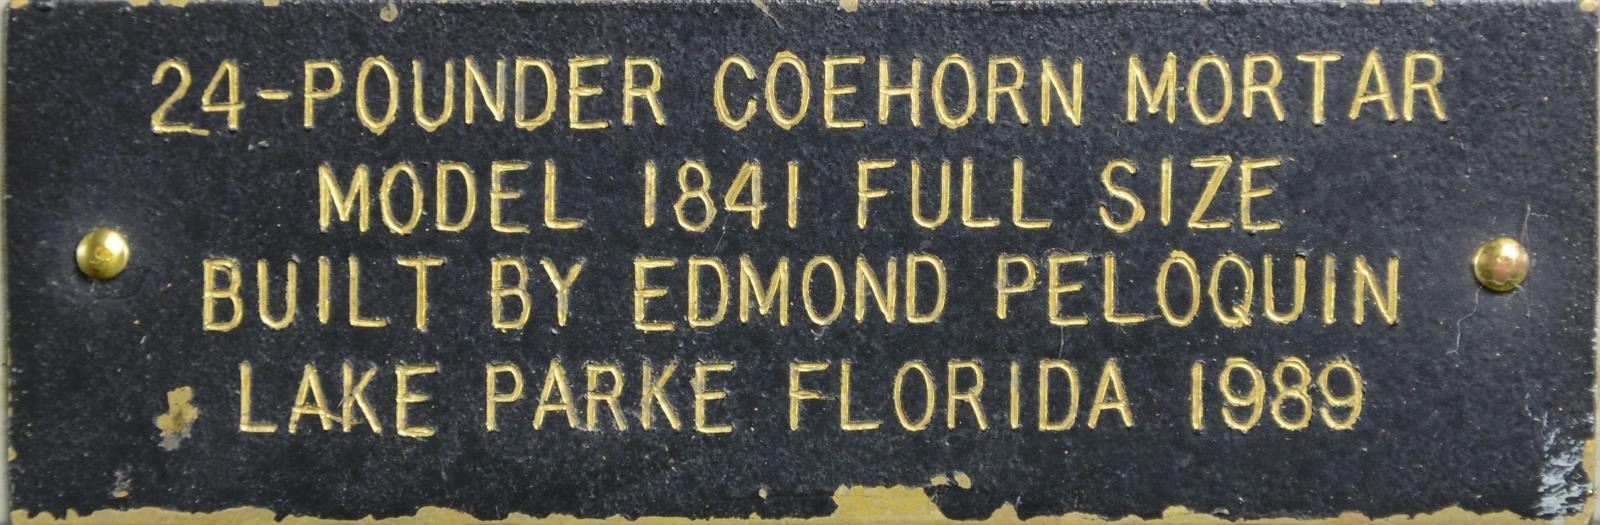 24-POUNDER COEHORN MORTAR
MODEL 1841 FULL SIZE
BUILT BY EDMOND PELOQUIN
LAKE PARKE FLORIDA 1989